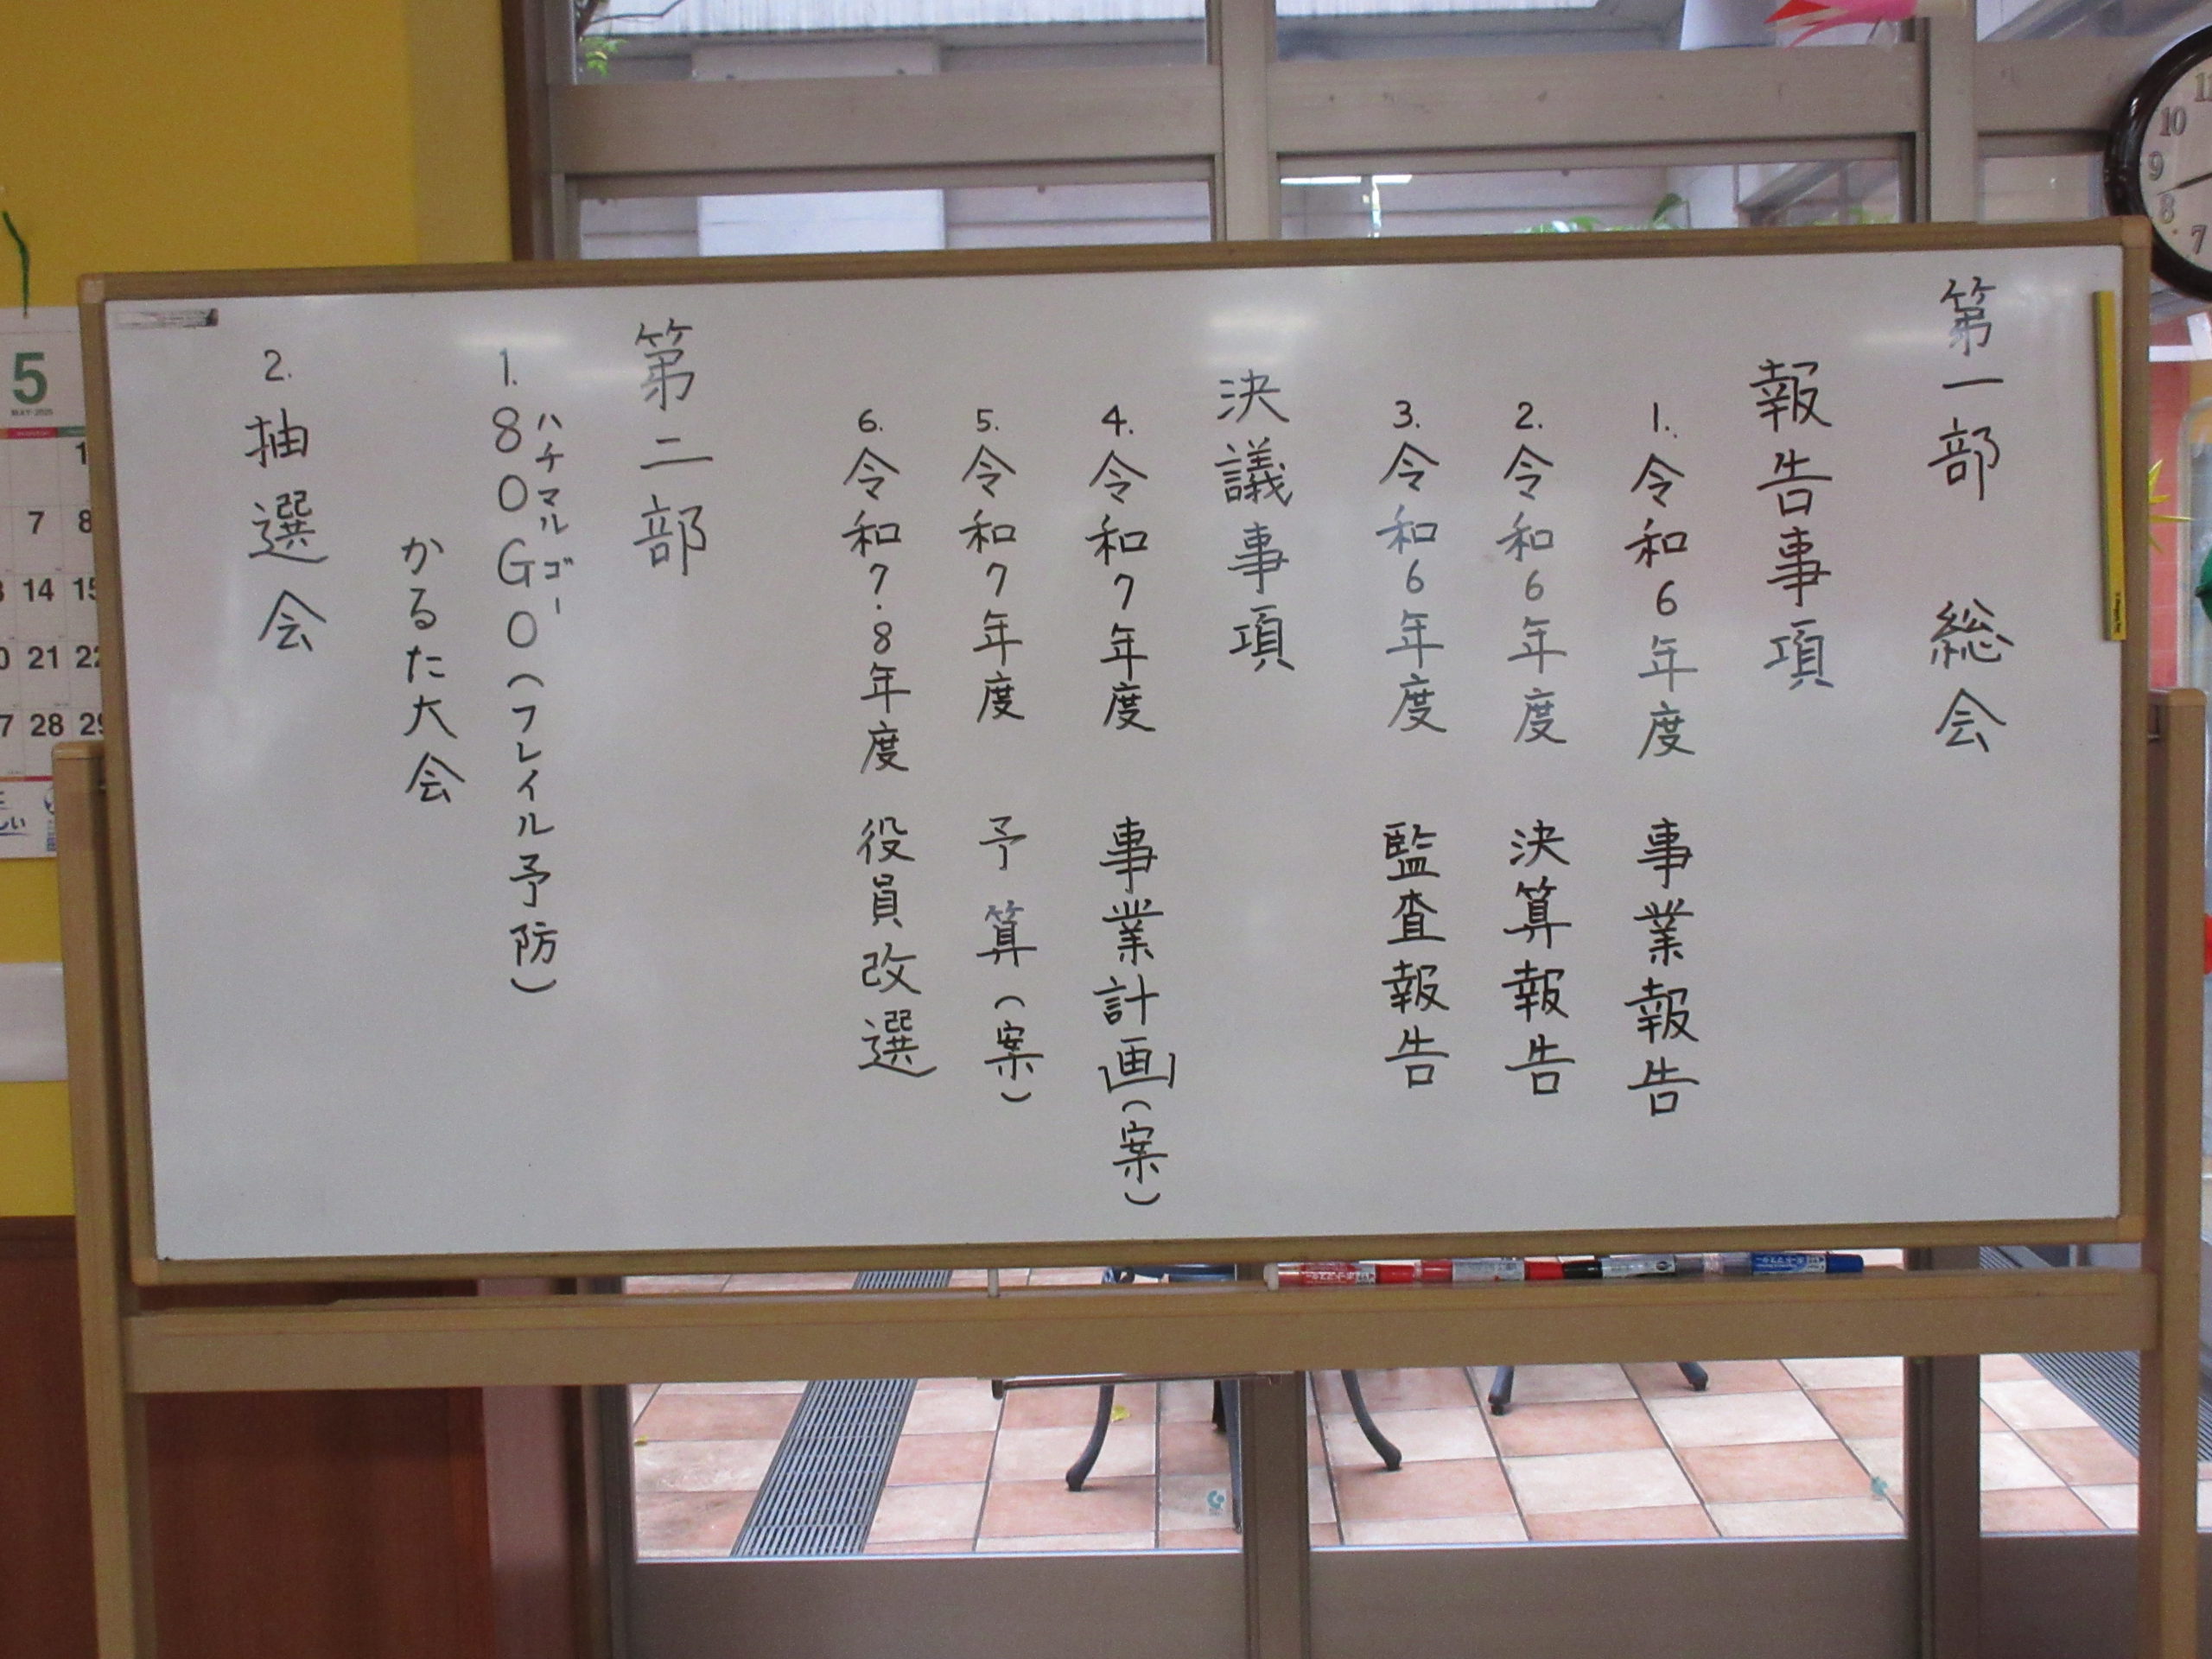 第一部　総会
報告事項
1. 令和6年度　事業報告
2. 令和6年度　決算報告
3. 令和6年度　監査報告
決議事項
4. 令和7年度　事業計画(案)
5. 令和7年度　予算(案)
6. 令和7.8年度　役員改選
第二部
ハチマルゴー
1. 80GO(フレイル予防)
かるた大会
2. 抽選会
5
MAY 2025
1
7 8
14 15
21 22
28 29
11
10
9
8
7